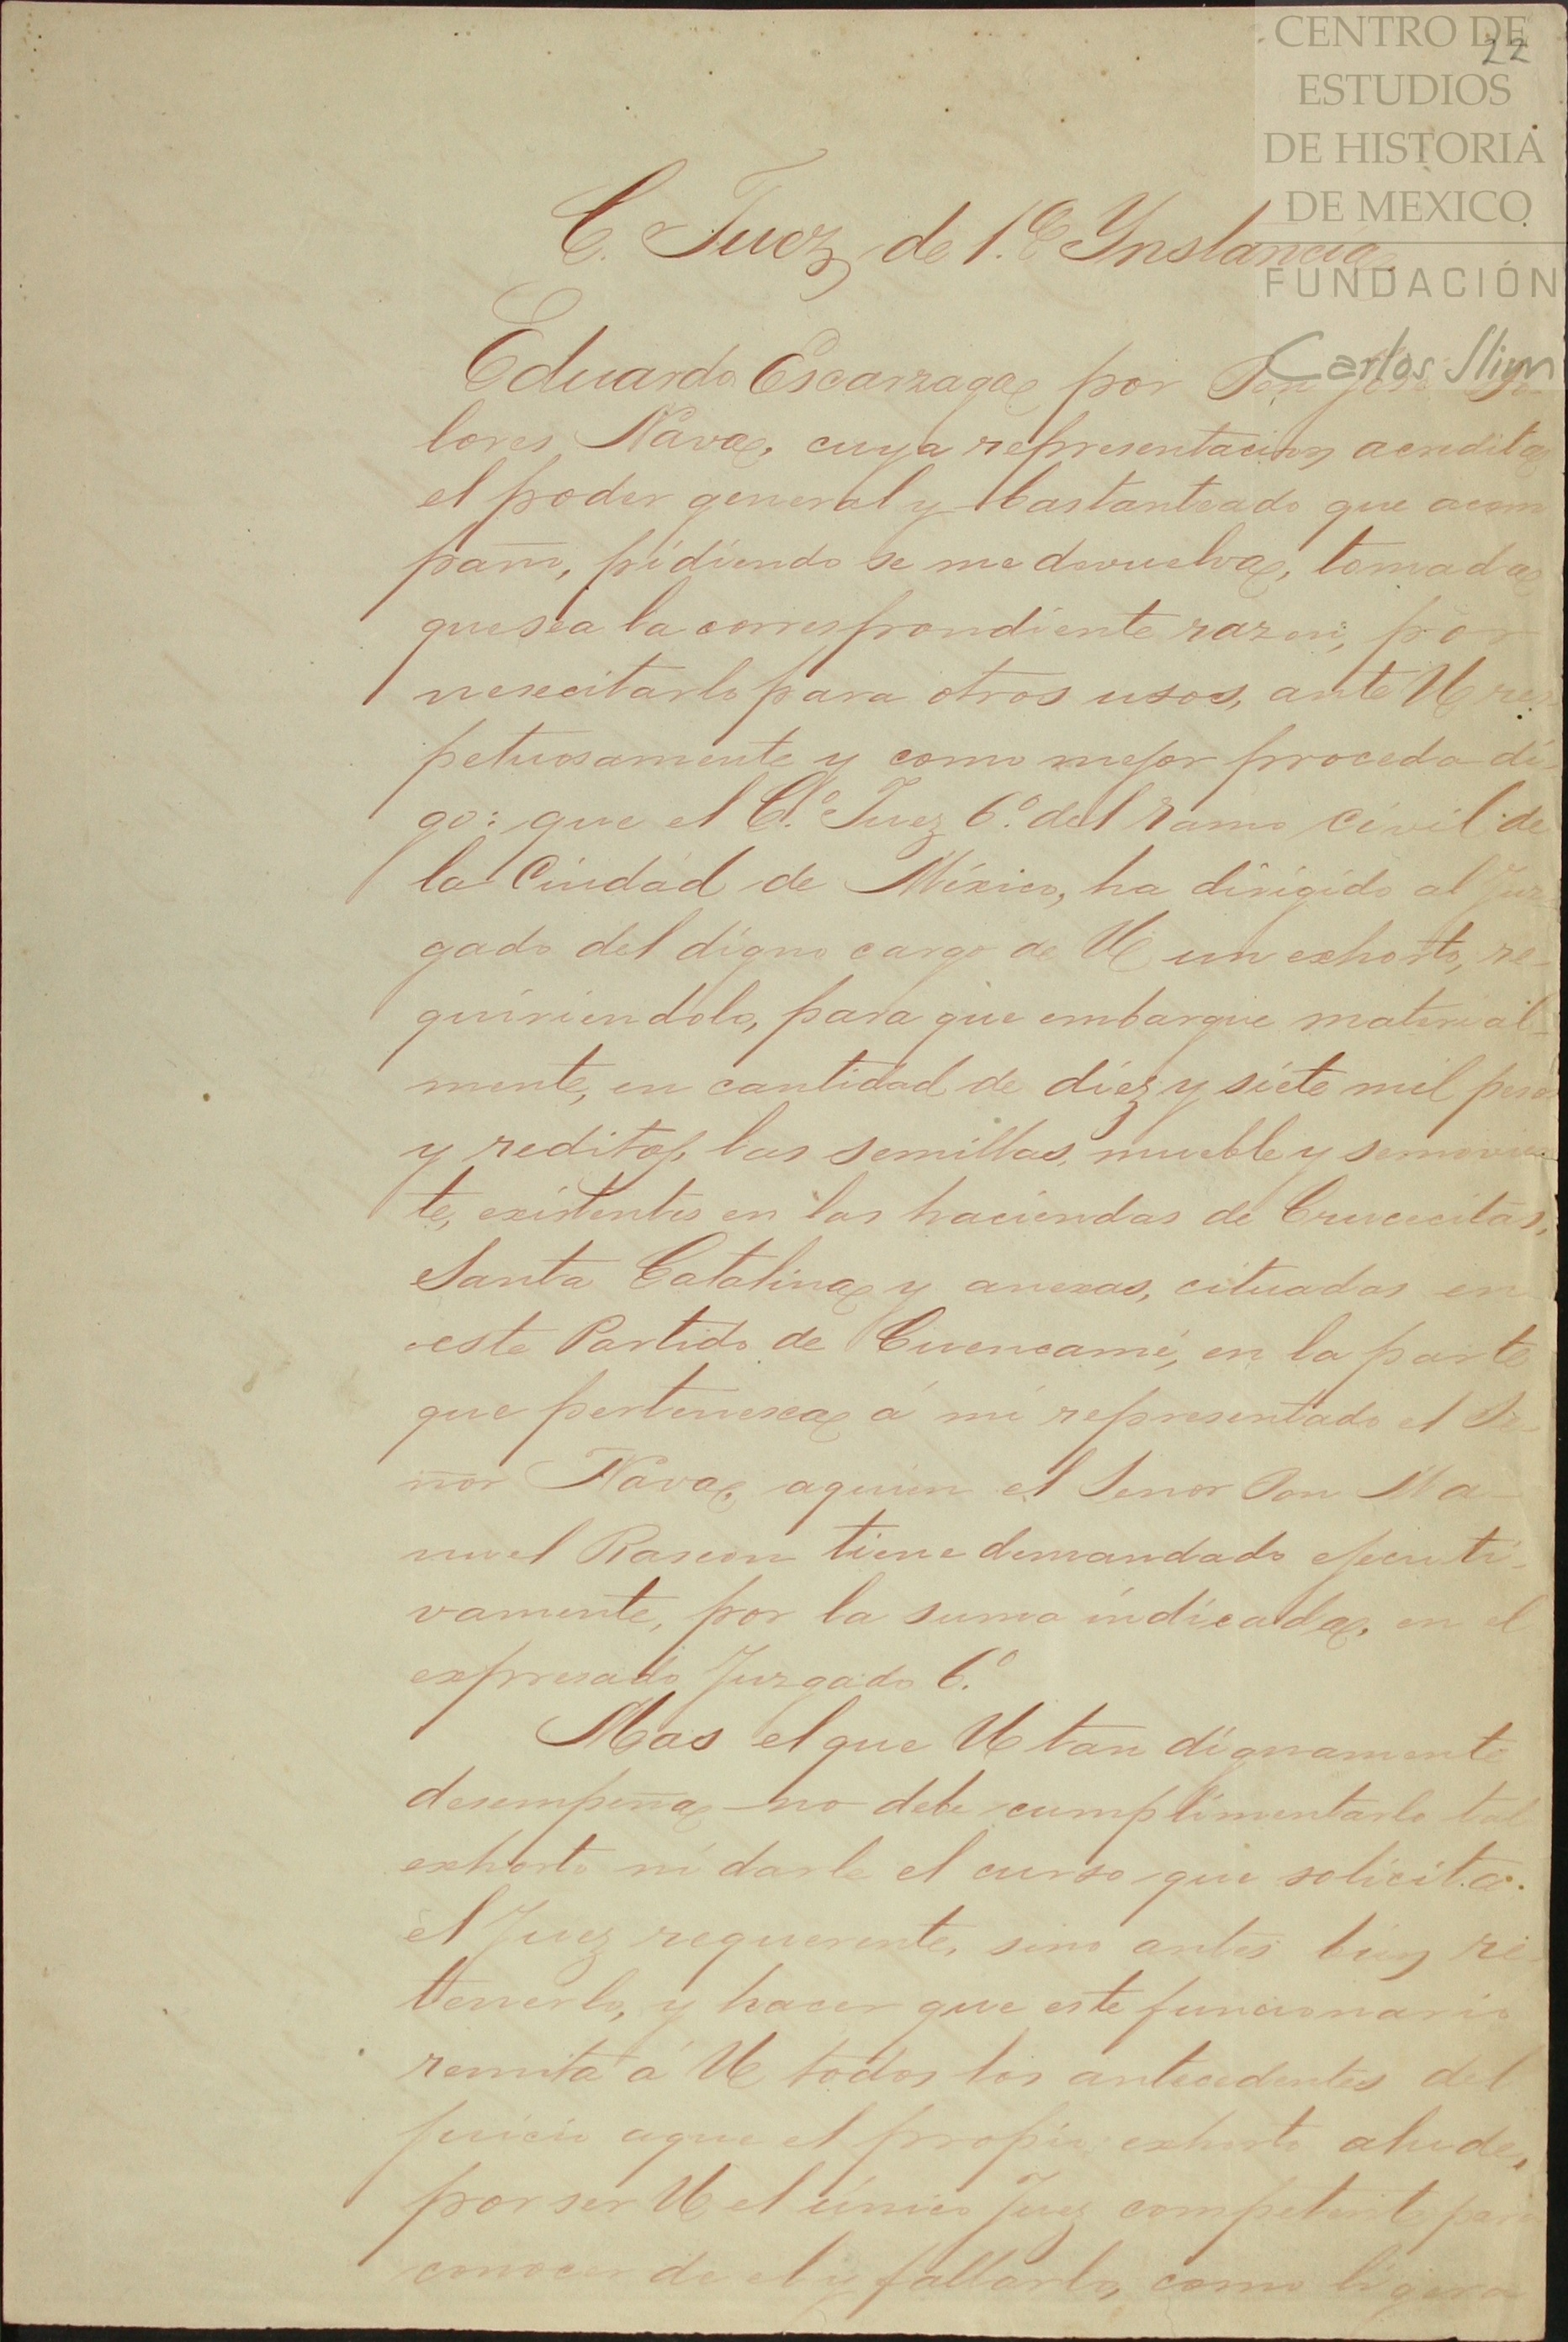 CENTRO DE
ESTUDIOS
DE HISTORIA
DE MEXICO
FUNDACIÓN
Carlos Slim
22
C. Juez de 1.ª Ynstancia
Eduardo Escarzaga por Don José Do-
lores Nava, cuya representacion acredita
el poder general y bastanteado que acom
paño, pidiendo se me devuelva, tomada
que sea la correspondiente razon, por
nesecitarlo para otros usos, ante U res
petuosamente y como mejor proceda di-
go: que el C.º Juez 6.º del ramo civil de
la Ciudad de México, ha dirigido al Juz-
gado del digno cargo de U un exhorto, re-
quiriendolo, para que embargue material-
mente, en cantidad de diez y siete mil pesos
y reditos, las semillas, mueble y semovien-
te, existentes en las haciendas de Crucecitas,
Santa Catalina y anexas, cituadas en
este Partido de Cuencamé, en la parte
que pertenesca á mi representado el Se-
ñor Nava, aquien el Senor Don Ma-
nuel Rascon tiene demandado ejecuti-
vamente, por la suma indicada, en el
expresado Juzgado 6.º
Mas el que U tan dignamente
desempeña no debe cumplimentarlo tal
exhorto ni darle el curso que solicita
el Juez requerente, sino antes bien re
tenerlo, y hacer que este funcionario
remita á U todos los antecedentes del
juicio aque el propio exhorto alude,
por ser U el único Juez competente para
conocer de el y fallarlo, como ligera